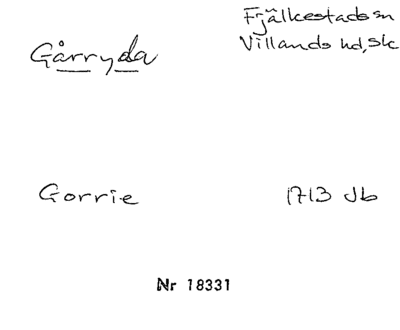 Fjälkestads sn
Gårryda
Villands hd, Sk
Gorrie
1713 Jb
Nr 18331